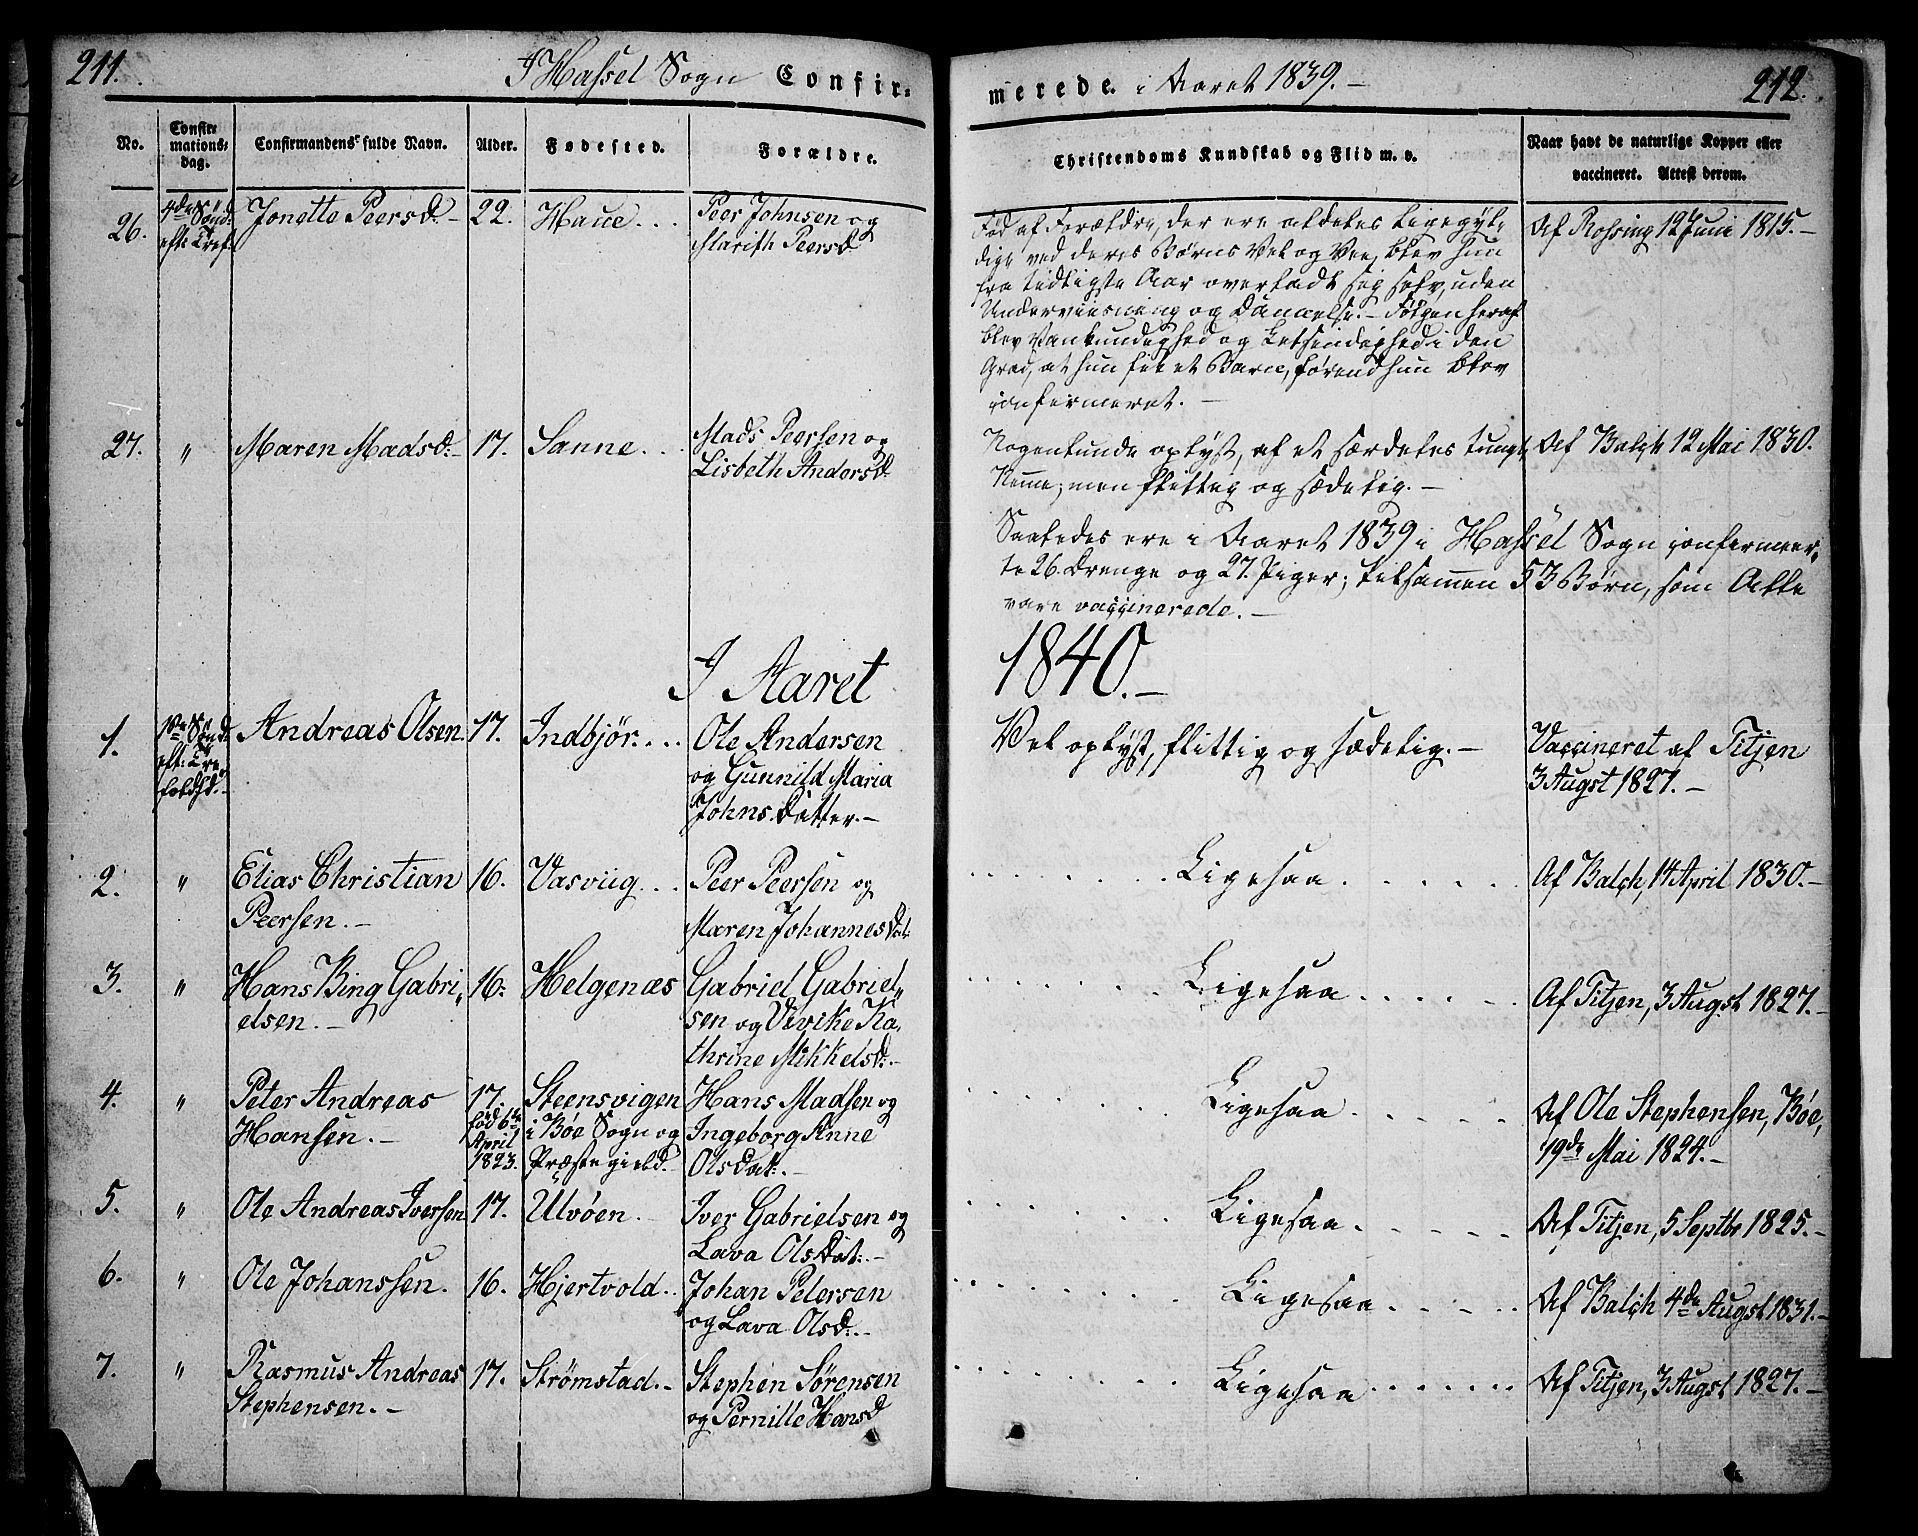 211.
I Hassel Sogn Confir-
merede. i Aaret 1839.-
212.
No.
Confir-
mations-
dag.
Confirmandens fulde Navn.
Alder.
Fødested.
Forældre.
Christendoms Kundskab og Flid m. v.
Naar havt de naturlige Kopper eller
vaccineret. Attest derom.
26.
4de Sønd:
eft: Tref.
Jonette Peersd.-
22.
Haue...
Peer Johnsen og
Marith Peersd
Fød af Forældre, der ere aldeles Ligegyl-
dige ved deres Børns Vel og Vee, blev hun
fra tidligste Aar overladt sig selv, uden
Underviisning og Dannelse.- Følgen heraf
blev Vankundighed og Letsindighed i den
Grad, at hun fik et Barn, førend hun blev
confirmeret.-
Af Rossing 12 Juni 1815.-
27.
"
Maren Madsd:-
17.
Sanne...
Mads Peersen og
Lisbeth Andersd:
Nogenlunde oplyst, af et særdeles tungt
Nemme; men flittig og sædelig.-
Af Balch 12 Mai 1830.
Saaledes ere i Aaret 1839 i Hassel Sogn confirmeer-
te 26 Drenge og 27. Piger; tilsammen 53 Børn, som Alle
vare vaccinerede.-
I Aaret
1840.-
1.
1ste Sønd.
eft: Tre-
foldhd.-
Andreas Olsen.
17.
Indbjør....
Ole Andersen
og Gunnild Maria
Johns.Datter.-
Vel oplyst, flittig og sædelig.-
Vaccineret af Titjen
3 Augst 1827.-
2.
"
Elias Christian
Peersen.-
16.
Vasviig...
Peer Peersen og
Maren Johannes Dat:
Ligesaa.
Af Balch, 14 April 1830.-
3.
"
Hans Bing Gabri-
elsen.-
16.
Helgenæs
Gabriel Gabriel-
sen og Vivike Ka-
thrine Mikkelsd:-
Ligesaa
Af Titjen, 3 Augst 1827.-
4.
"
Peter Andreas
Hansen.-
17.
fød 6te
April
1823.
Steensvigen
i Bøe Sogn og
Præstegield.-
Hans Madsen og
Ingeborg Anne
OlsDat:.-
Ligesaa
Af Ole Stephensen, Bøe,
19de Mai 1824.-
5.
"
Ole Andreas Iversen
17.
Ulvøen.
Iver Gabrielsen og
Lava OlsDat:.-
Ligesaa
Af Titjen, 5 Septbr 1825.-
6.
"
Ole Johanssen.
16.
Hjertvold..
Johan Petersen
og Lava Olsd:.-
Ligesaa
Af Balch 4de Augst 1831.-
7.
"
Rasmus Andreas
Stephensen.-
17.
Strømstad.-
Stephen Sørensen
og Pernille Hansd
Ligesaa
Af Titjen, 3 Augst 1827.-